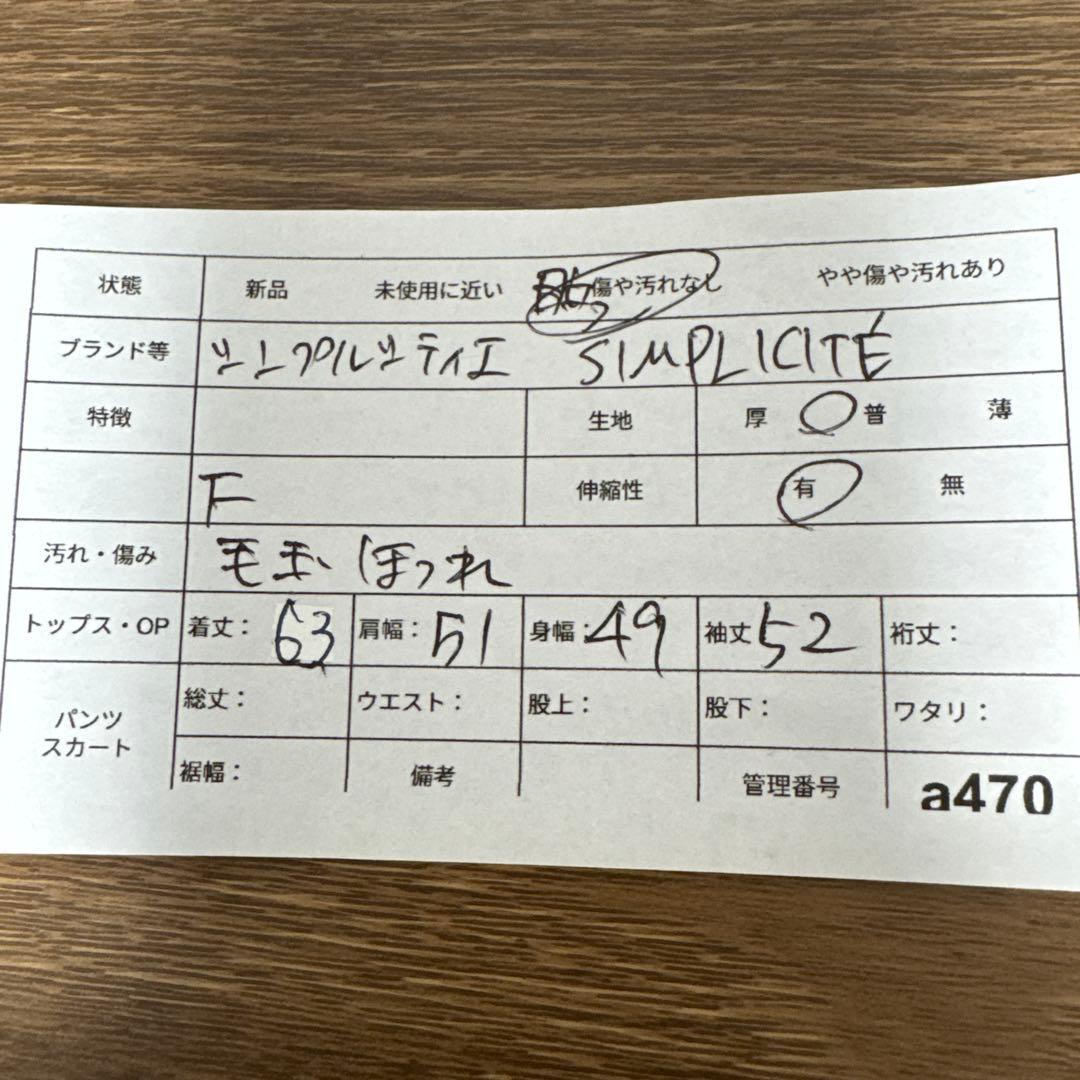 状態 新品 未使用に近い 目立つ傷や汚れなし やや傷や汚れあり
ブランド等 シンプルシティエ SIMPLICITÉ
特徴 生地 厚 普 薄
F 伸縮性 有 無
汚れ・傷み 毛玉、ほつれ
トップス・OP 着丈: 63 肩幅: 51 身幅: 49 袖丈 52 裄丈:
パンツ スカート 総丈: ウエスト: 股上: 股下: ワタリ:
裾幅: 備考 管理番号 a470